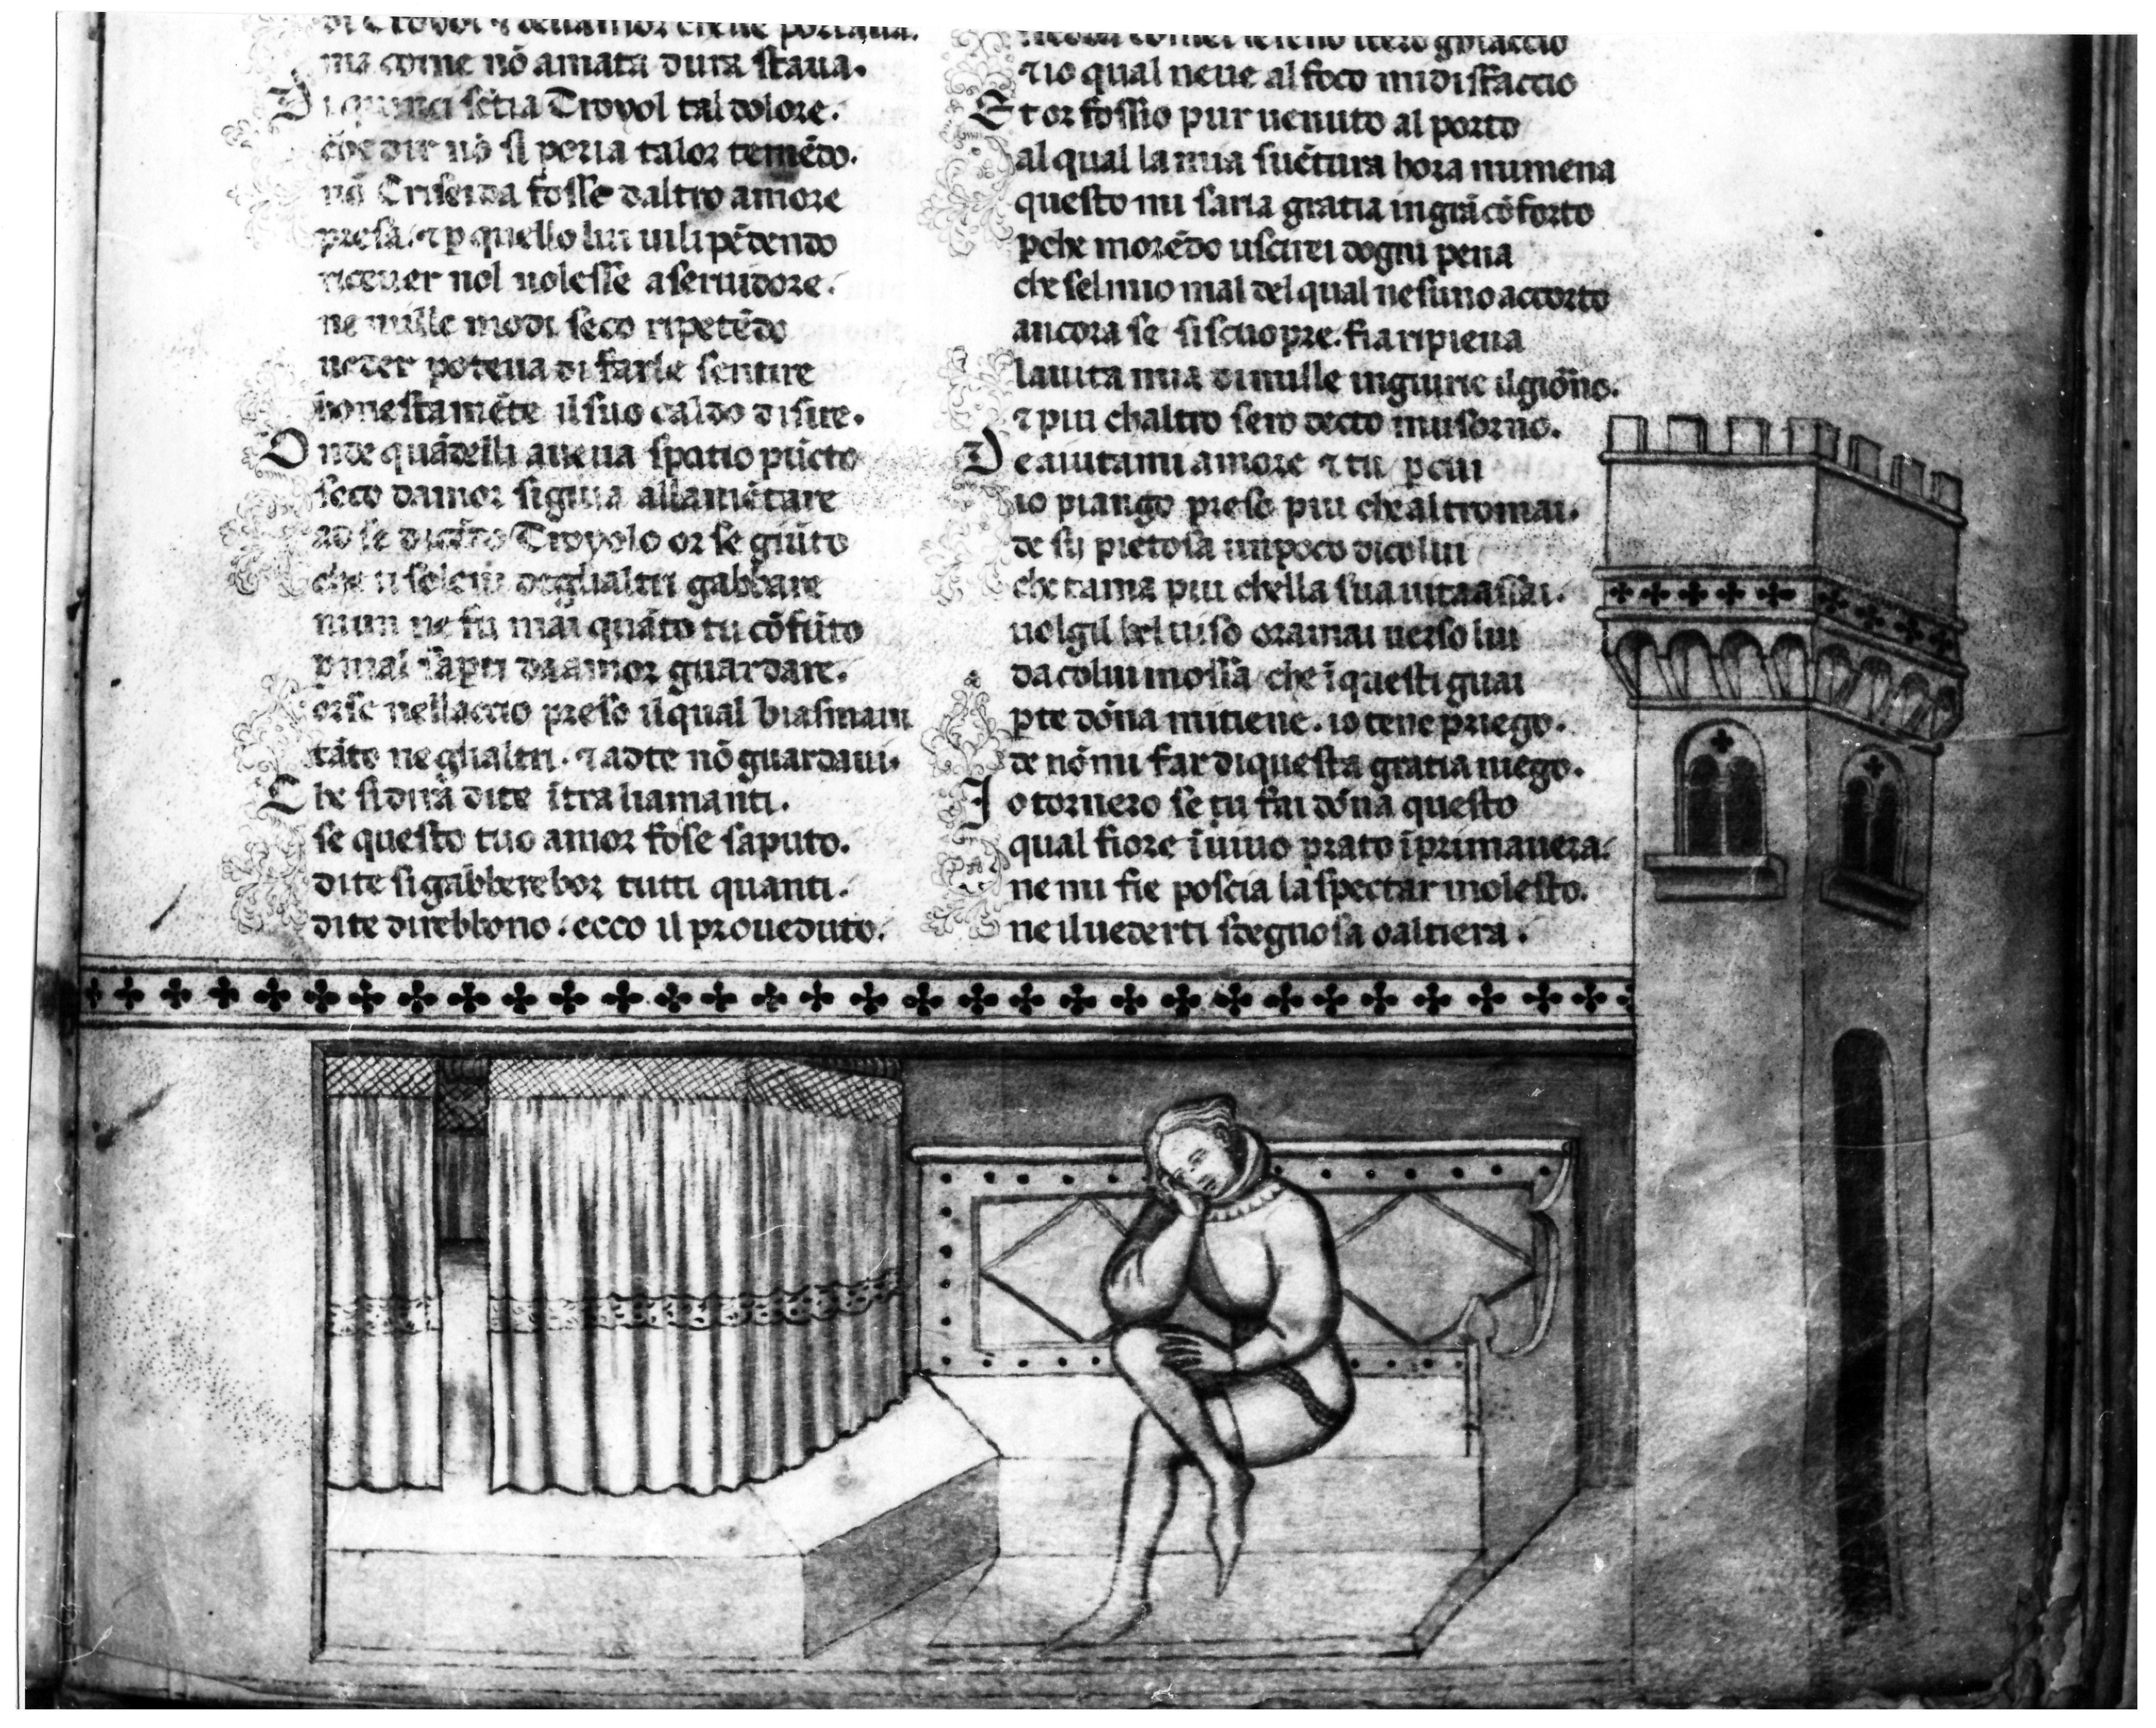 di Troyol ⁊ dellamor chelle portaua.
ma come nō amata dura staua.
Di quinci sētia Troyol tal dolore.
che dir nō si poria talor temēdo.
nō Criseida fosse daltro amore
presa. ⁊ p quello lui uilipēdendo
riceuer nol uolesse a seruidore.
ne mille modi seco ripetēdo
ueder poteua di farle sentire
honestamēte il suo caldo disire.
Onde quādelli aueua spatio pūcto
seco damor sigiua allamētare
ad se dicēdo Troyolo or se giūto
che ti soleui deglialtri gabbare
niun ne fu mai quāto tu cōsūto
p mal sapti da amor guardare.
orse nellaccio preso ilqual biasmaui
tāto neglialtri. ⁊ adte nō guardaui.
Che si dirà dite ītra liamanti.
se questo tuo amor fosse saputo.
dite si gabberebor tutti quanti.
dite direbbono. ecco il proueduto.
⁊ io qual neue al foco mi disfaccio
Et or fossio pur uenuto al porto
al qual la mia suētura hora mi mena
questo mi saria gratia ingrā cōforto
pche morēdo uscirei dogni pena
che sel mio mal del qual nesuno accorto
ancora se si scuopre. fia ripiena
la uita mia di mille ingiurie il giōno.
⁊ piu chaltro sero decto musorno.
De aiutami amore ⁊ tu p cui
io piango preso piu che altromai.
de sij pietosa un poco di colui
che tama piu chella sua uita assai.
uolgi il bel uiso oramai uerso lui
da colui mossa che ī questi guai
pte dōna mi tiene. io tene priego.
de nō mi far di questa gratia niego.
Io tornero se tu fai dōna questo
qual fiore ī uiuo prato ī primauera.
ne mi fie poscia laspectar molesto.
ne il uederti sdegnosa o altiera.